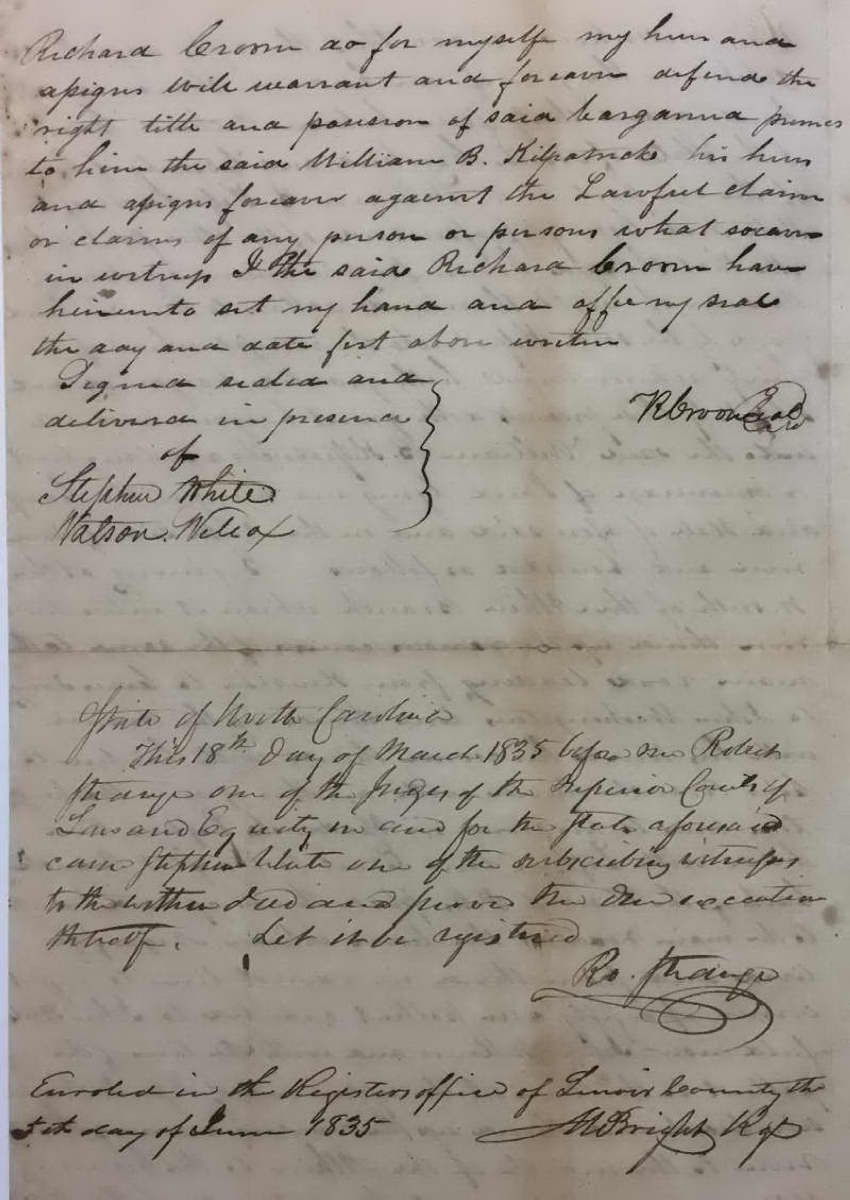 Richard Croom do for myself my heirs and
assigns will warrant and forearm defend the
right title and possesion of said barganed premes
to him the said William B. Kilpatrick his heirs
and assigns forever against the Lawful claim
or claims of any person or persons what soever
in witness I the said Richard Croom have
hereunto set my hand and affix my seal
the day and date first above written
Signed sealed and
delivered in presence
of
R Croom Seal
Stephen White
Watson Wilcox
State of North Carolina
This 18th Day of March 1835 before me Robert
Strange one of the Judges of the Superior Courts of
Law and Equity in and for the State aforesaid
came Stephen White one of the subscribing witnesses
to the within deed and proved the due execution
thereof. Let it be registered
Ro. Strange
Enroled in the Registers office of Lenoir County the
5th day of June 1835 Bright Reg